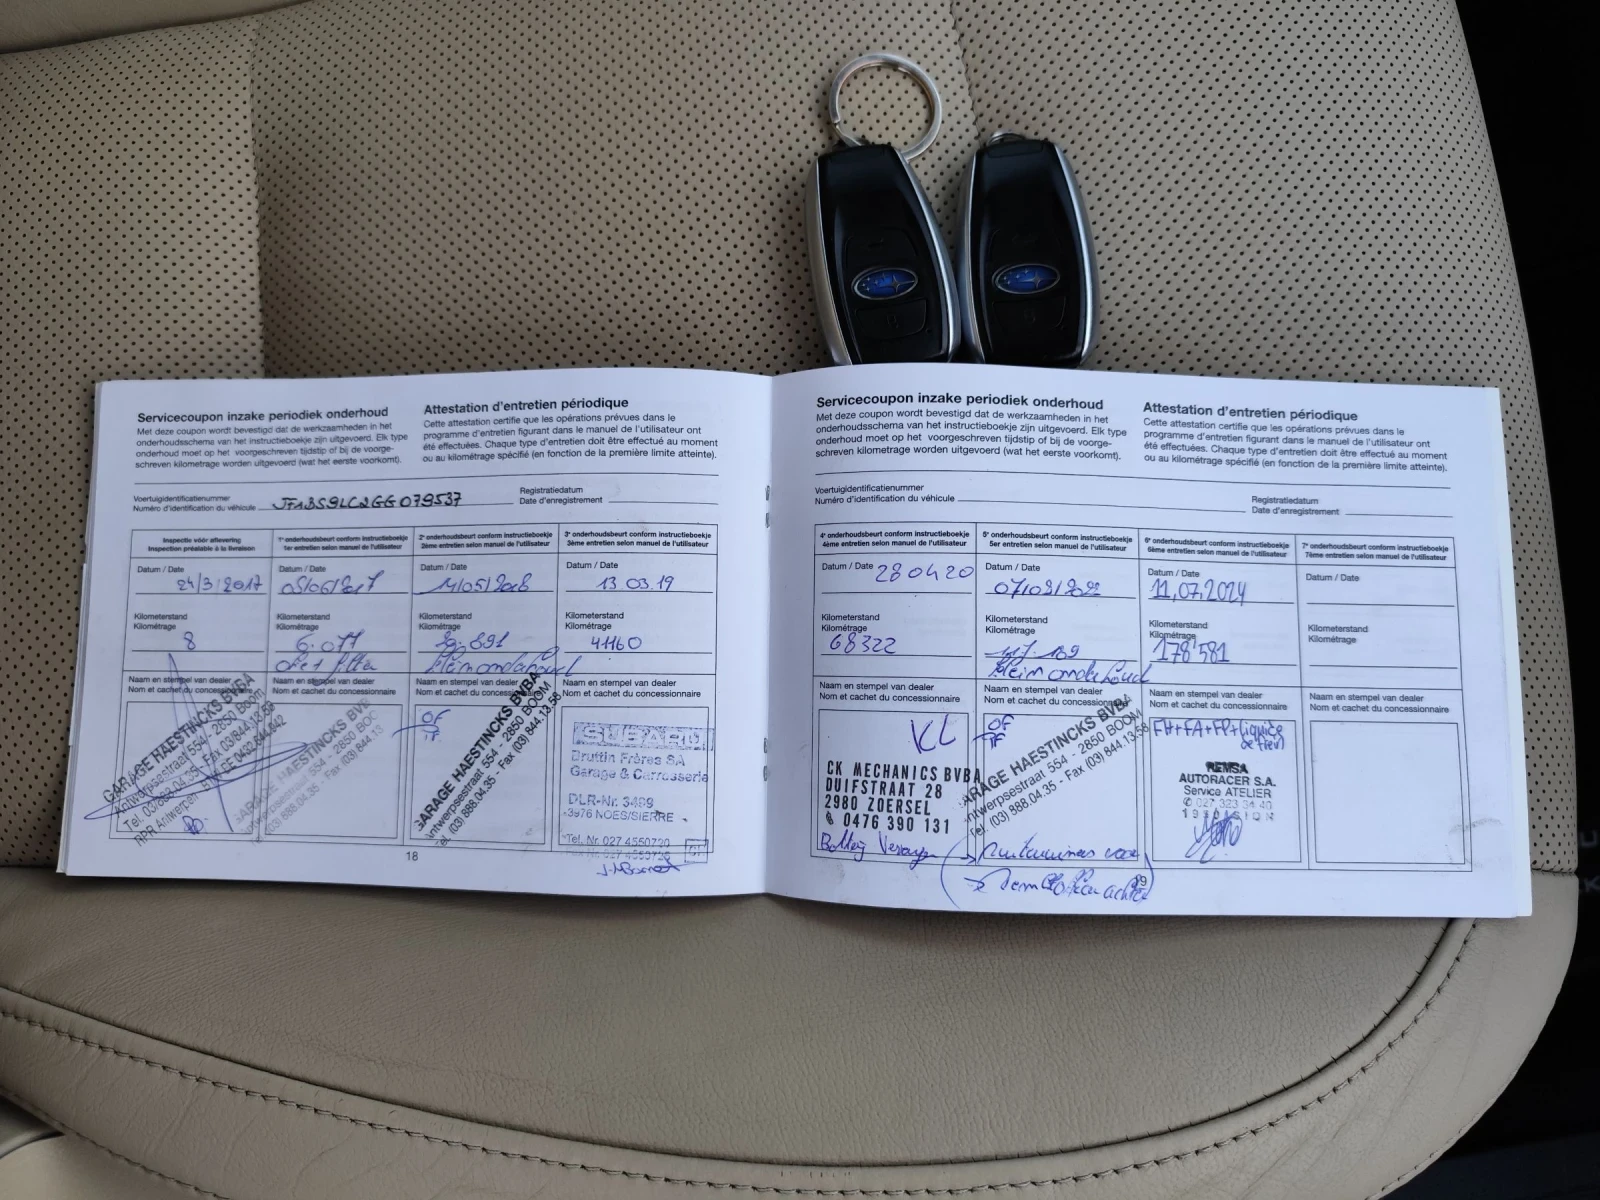 Servicecoupon inzake periodiek onderhoud
Met deze coupon wordt bevestigd dat de werkzaamheden in het
onderhoudsschema van het instructieboekje zijn uitgevoerd. Elk type
onderhoud moet op het voorgeschreven tijdstip of bij de voorge-
schreven kilometrage worden uitgevoerd (wat het eerste voorkomt).
Attestation d'entretien périodique
Cette attestation certifie que les opérations prévues dans le
programme d'entretien figurant dans le manuel de l'utilisateur ont
été effectuées. Chaque type d'entretien doit être effectué au moment
ou au kilométrage spécifié (en fonction de la première limite atteinte).
Voertuigidentificatienummer
Numéro d'identification du véhicule
Registratiedatum
Date d'enregistrement
Inspectie vóór aflevering
Inspection préalable à la livraison
Datum / Date
24/3/2017
Kilometerstand
Kilométrage
8
Naam en stempel van dealer
Nom et cachet du concessionnaire
GARAGE HAESTINCKS BVBA
Antwerpsestraat 554 - 2850 Boom
1e onderhoudsbeurt conform instructieboekje
1er entretien selon manuel de l'utilisateur
Datum / Date
Kilometerstand
Kilométrage
6.077
Naam en stempel van dealer
Nom et cachet du concessionnaire
GARAGE HAESTINCKS BVBA
2e onderhoudsbeurt conform instructieboekje
2ème entretien selon manuel de l'utilisateur
Datum / Date
14/05/2018
Kilometerstand
Kilométrage
klein onderhoud
Naam en stempel van dealer
Nom et cachet du concessionnaire
OF
GARAGE HAESTINCKS BVBA
Antwerpsestraat 554 - 2850 BOOM
Tel. (03) 888.04.35 - Fax (03) 844.13.58
3e onderhoudsbeurt conform instructieboekje
3ème entretien selon manuel de l'utilisateur
Datum / Date
13.03.19
Kilometerstand
Kilométrage
41160
Naam en stempel van dealer
Nom et cachet du concessionnaire
SUBARU
Bruttin Frères SA
Garage & Carrosserie
DLR-Nr. 3499
3976 NOES/SIERRE
Tel. Nr. 027 4550720
18
Servicecoupon inzake periodiek onderhoud
Met deze coupon wordt bevestigd dat de werkzaamheden in het
onderhoudsschema van het instructieboekje zijn uitgevoerd. Elk type
onderhoud moet op het voorgeschreven tijdstip of bij de voorge-
schreven kilometrage worden uitgevoerd (wat het eerste voorkomt).
Attestation d'entretien périodique
Cette attestation certifie que les opérations prévues dans le
programme d'entretien figurant dans le manuel de l'utilisateur ont
été effectuées. Chaque type d'entretien doit être effectué au moment
ou au kilométrage spécifié (en fonction de la première limite atteinte).
Voertuigidentificatienummer
Numéro d'identification du véhicule
Registratiedatum
Date d'enregistrement
4e onderhoudsbeurt conform instructieboekje
4ème entretien selon manuel de l'utilisateur
Datum / Date 280420
Kilometerstand
Kilométrage
68322
Naam en stempel van dealer
Nom et cachet du concessionnaire
KL
CK MECHANICS BVBA
DUIFSTRAAT 28
2980 ZOERSEL
0476 390 131
5e onderhoudsbeurt conform instructieboekje
5er entretien selon manuel de l'utilisateur
Datum / Date
Kilometerstand
Kilométrage
klein onderhoud
Naam en stempel van dealer
Nom et cachet du concessionnaire
OF
GARAGE HAESTINCKS BVBA
Antwerpsestraat 554 - 2850 BOOM
Tel. (03) 888.04.35 - Fax (03) 844.13.58
6e onderhoudsbeurt conform instructieboekje
6ème entretien selon manuel de l'utilisateur
Datum / Date
11.07.2024
Kilometerstand
Kilométrage
178'581
Naam en stempel van dealer
Nom et cachet du concessionnaire
FH+FA+FP+liquide
de frein
REMSA
AUTORACER S.A.
Service ATELIER
027 323 34 40
1950 SION
7e onderhoudsbeurt conform instructieboekje
7ème entretien selon manuel de l'utilisateur
Datum / Date
Kilometerstand
Kilométrage
Naam en stempel van dealer
Nom et cachet du concessionnaire